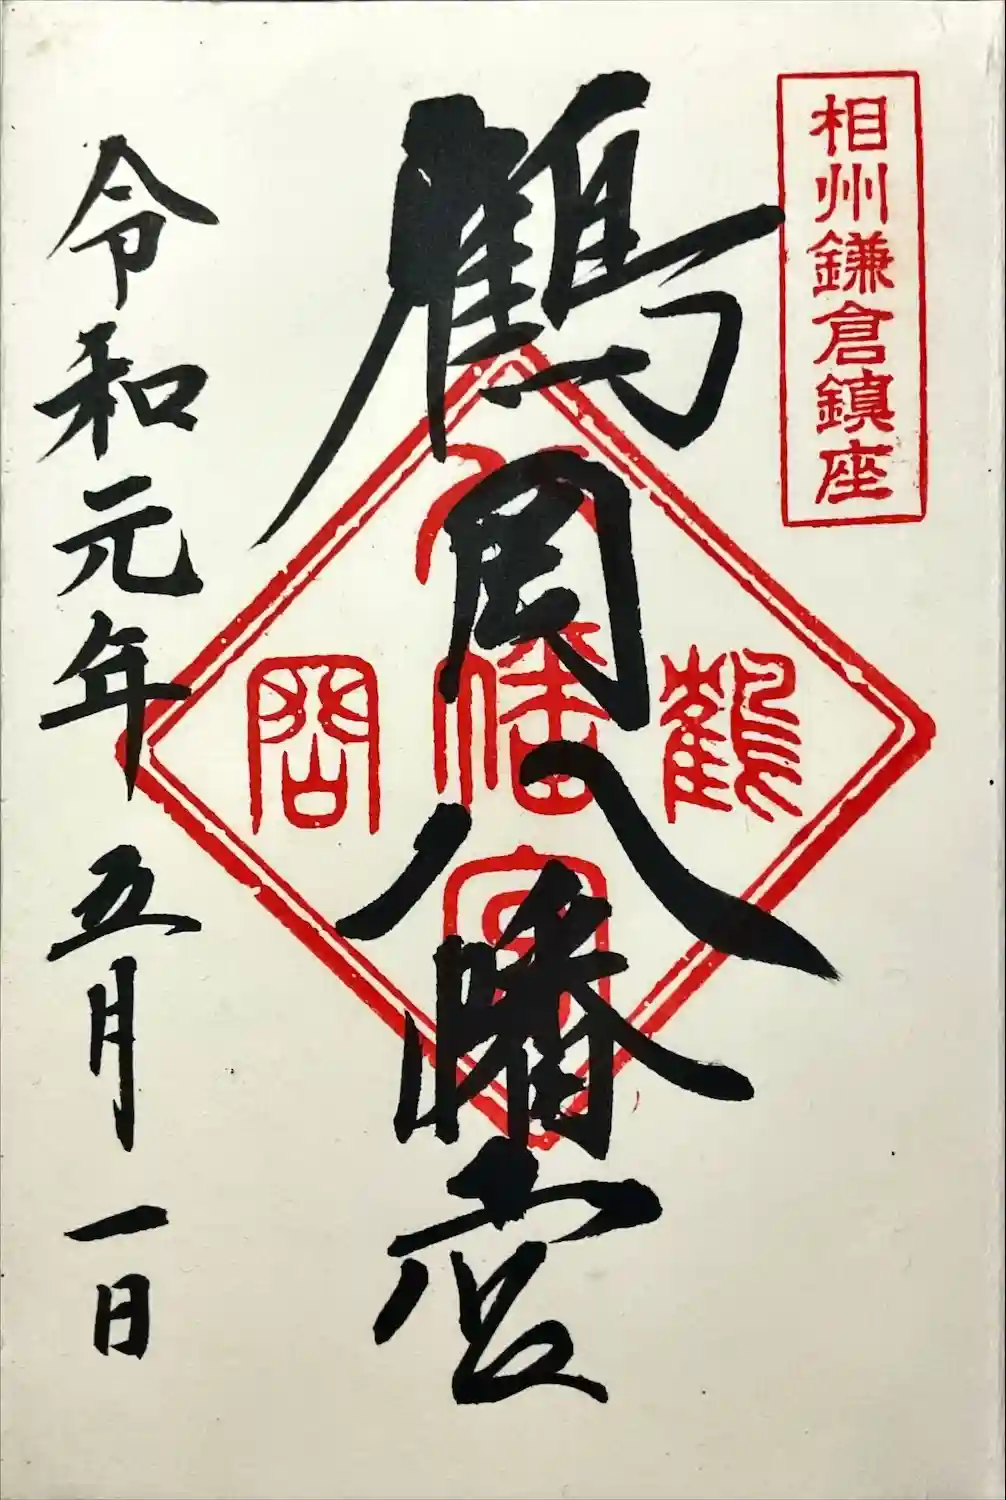 相州鎌倉鎮座
鶴岡八幡宮
鶴岡
八幡宮
令和元年五月一日